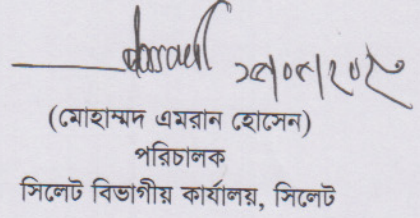 (মোহাম্মদ এমরান হোসেন)
পরিচালক
সিলেট বিভাগীয় কার্যালয়, সিলেট